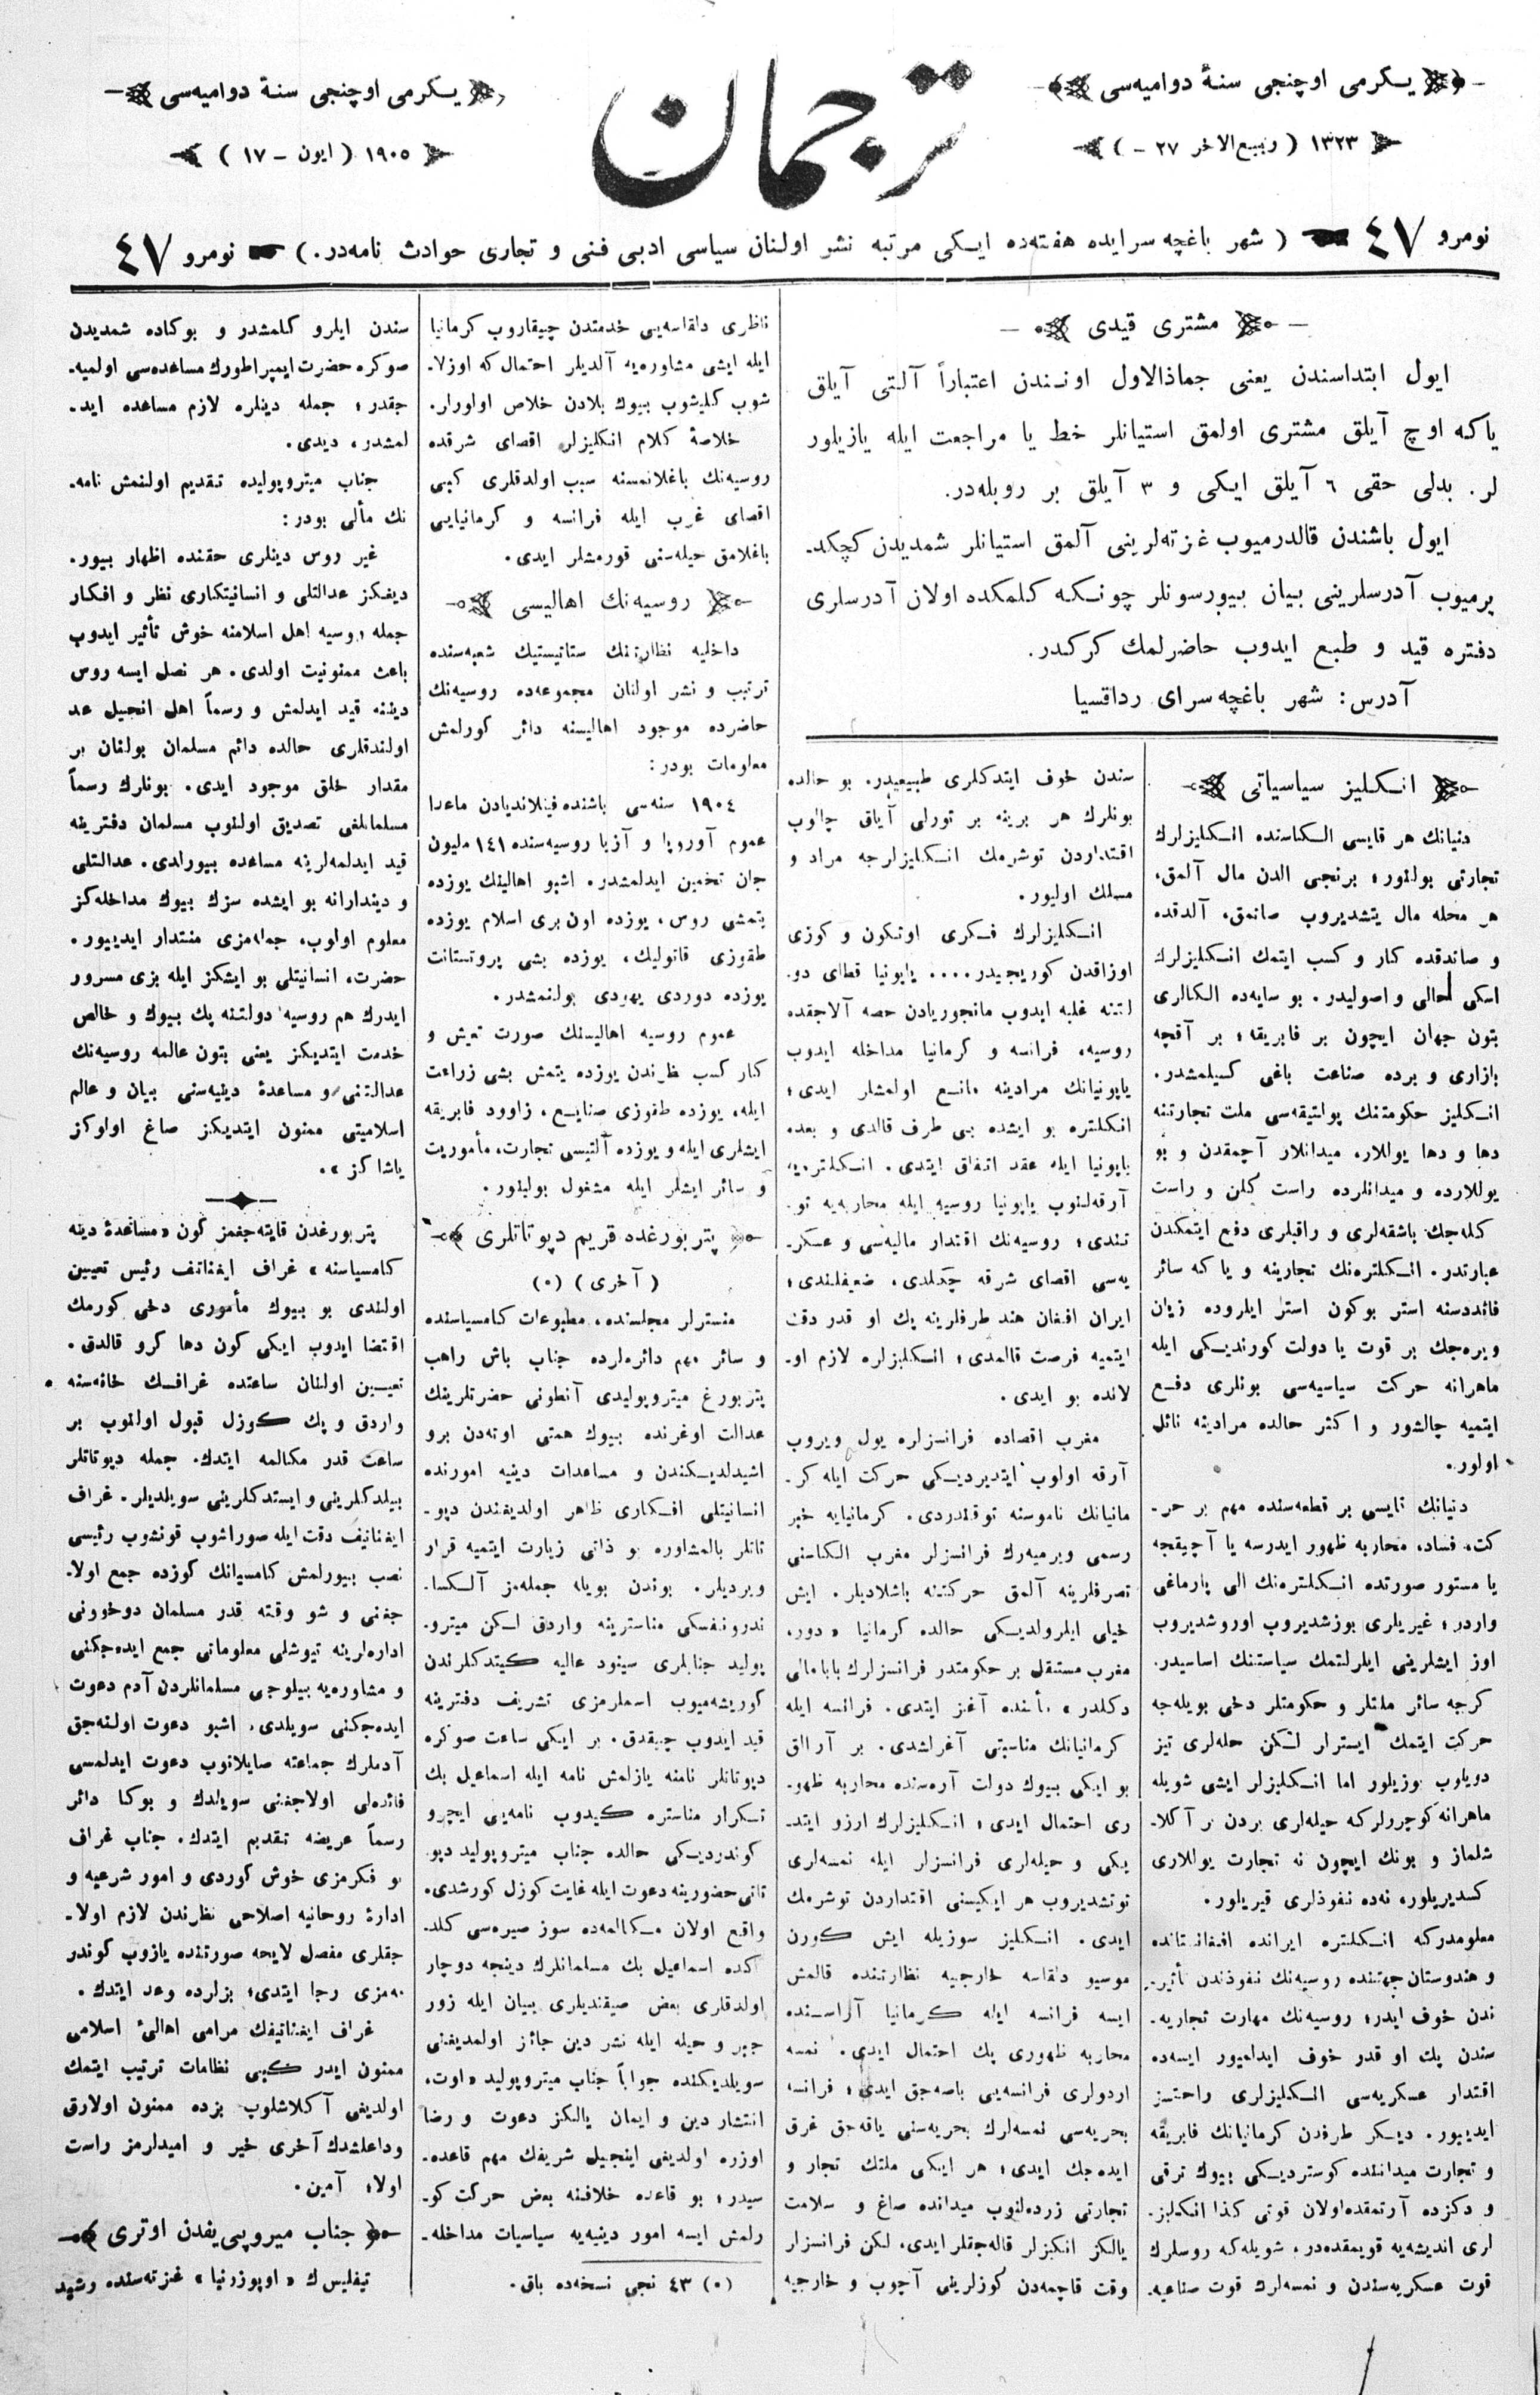 يكرمی اوچنجی سنۀ دواميه‌سی
١٣٢٣ ( ربيع‌الاخر ٢٧ - )
ترجمان
يكرمی اوچنجی سنۀ دواميه‌سی
١٩٠٥ ( ايون - ١٧ )
نومرو ٤٧ ( شهر باغچه سرايده هفته‌ده ايكی مرتبه نشر اولنان سياسی ادبی فنی و تجاری حوادث نامه‌در. ) نومرو ٤٧
مشتری قيدی
ايول ابتداسندن يعنی جماذالاول اونندن اعتباراً آلتی آيلق
ياكه اوچ آيلق مشتری اولمق استيانلر خط يا مراجعت ايله يازيلور
لر. بدلی حقی ٦ آيلق ايكی و ٣ آيلق بر روبله‌در.
ايول باشندن قالدرميوب غزته‌لرينی آلمق استيانلر شمديدن كچكد-
يرميوب آدرسلرينی بيان بيورسونلر چونكه كلمكده اولان آدرسلری
دفتره قيد و طبع ايدوب حاضرلمك كركدر.
آدرس: شهر باغچه سرای رداقسيا
انكليز سياسياتی
دنيانك هر قايسی الكاسنده انكليزلرك
تجارتی بولنور؛ برنجی الدن مال آلمق،
هر محله مال يتشديروب صاتمق، آلدقده
و صاتدقده كار و كسب ايتمك انكليزلرك
اسكی حالی و اصوليدر. بو سايه‌ده الكالری
بتون جهان ايچون بر فابريقه؛ بر آقچه
بازاری و برده صناعت باغی كسيلمشدر.
انكليز حكومتنك پولتيقه‌سی ملت تجارتنه
دها و دها يوللار، ميدانلار آچمقدن و بو
يوللارده و ميدانلرده راست كلن و راست
كله‌جك باشقه‌لری و راقبلری دفع ايتمكدن
عبارتدر. انكلتره‌نك تجارينه و يا كه سائر
فائده‌سنه استر بوكون استر ايلروده زيان
ويره‌جك بر قوت يا دولت كورنديكی ايله
ماهرانه حركت سياسيه‌سی بونلری دفع
ايتميه چالشور و اكثر حالده مرادينه نائل
اولور.
دنيانك قايسی بر قطعه‌سنده مهم بر حر-
كت، فساد، محاربه ظهور ايدرسه يا آچيقجه
يا مستور صورتده انكلتره‌نك الی پارماغی
واردر؛ غيريلری بوزشديروب اوروشديروب
اوز ايشلرينی ايلرلتمك سياستنك اساسيدر.
كرچه سائر ملتلر و حكومتلر دخی بويله‌جه
حركت ايتمك ايسترلر لكن حله‌لری تيز
دويلوب بوزيلور اما انكليزلر ايشی شويله
ماهرانه كوچرولركه حيله‌لری بردن بر آكلا-
شلماز و بونك ايچون نه تجارت يوللاری
كسديريلور، نه‌ده نفوذلری قيريلور.
معلومدركه انكلتره ايرانده افغانستانده
و هندوستان جهتنده روسيه‌نك نفوذندن تأثير-
ندن خوف ايدر؛ روسيه‌نك مهارت تجاريه-
سندن پك او قدر خوف ايدلميور ايسه‌ده
اقتدار عسكريه‌سی انكليزلری راحتسز
ايدييور. ديكر طرفدن كرمانيانك فابريقه
و تجارت ميداننده كوسترديكی بيوك ترقی
و دكزده آرتمقده‌اولان قوتی كذا انكليز-
لری انديشه‌يه قويمقده‌در، شويله‌كه روسلرك
قوت عسكريه‌سندن و نمسه‌لرك قوت صناعيه-
سندن خوف ايتدكلری طبيعيدر. بو حالده
بونلرك هر برينه بر تورلی آياق چالوب
اقتداردن توشرمك انكليزلرجه مراد و
مسلك اوليور.
انكليزلرك فكری اوتكون و كوزی
اوزاقدن كوريجيدر.... ياپونيا قطای دو-
لتنه غلبه ايدوب مانجوريادن حصه آلاجقده
روسيه، فرانسه و كرمانيا مداخله ايدوب
ياپونيانك مرادينه مانع اولمشلر ايدی؛
انكلتره بو ايشده بی طرف قالدی و بعده
ياپونيا ايله عقد اتفاق ايتدی. انكلتره‌يه
آرقه‌لنوب ياپونيا روسيه ايله محاربه‌يه تو-
تندی؛ روسيه‌نك اقتدار ماليه‌سی و عسكر-
يه‌سی اقصای شرقه چكلدی، ضعيفلندی؛
ايران افغان هند طرفلرينه پك او قدر دقت
ايتميه فرصت قالمدی؛ انكليزلره لازم او-
لانده بو ايدی.
مغرب اقصاده فرانسزلره يول ويروب
آرقه اولوب ايتديرديكی حركت ايله كر-
مانيانك ناموسنه توقندردی. كرمانيايه خبر
رسمی ويرميه‌رك فرانسزلر مغرب الكاسنی
تصرفلرينه آلمق حركتنه باشلاديلر. ايش
خيلی ايلرولديكی حالده كرمانيا «دور،
مغرب مستقل بر حكومتدر فرانسزلرك بابا مالی
دكلدر» مأننده آغز ايتدی. فرانسه ايله
كرمانيانك مناسبتی آغرلشدی. بر آرالق
بو ايكی بيوك دولت آره‌سنده محاربه ظهو-
ری احتمال ايدی؛ انكليزلرك ارزو ايتد-
يكی و حيله‌لری فرانسزلر ايله نمسه‌لری
توتشديروب هر ايكيسنی اقتداردن توشرمك
ايدی. انكليز سوزيله ايش كورن
موسيو دلقاسه خارجيه نظارتنده قالمش
ايسه فرانسه ايله كرمانيا آراسنده
محاربه ظهوری پك احتمال ايدی. نمسه
اردولری فرانسه‌يی باصه‌جق ايدی؛ فرانسه
بحريه‌سی نمسه‌لرك بحريه‌سنی ياقه‌جق غرق
ايده‌جك ايدی؛ هر ايكی ملتك تجار و
تجارتی زرده‌لنوب ميدانده صاغ و سلامت
يالكز انكليزلر قاله‌جقلر ايدی، لكن فرانسزلر
وقت قاچمه‌دن كوزلرينی آچوب و خارجيه
ناظری دلقاسه‌يی خدمتدن چيقاروب كرمانيا
ايله ايشی مشاوره‌يه آلديلر احتمال كه اوزلا-
شوب كليشوب بيوك بلادن خلاص اولورلر.
خلاصۀ كلام انكليزلر اقصای شرقده
روسيه‌نك باغلانمسنه سبب اولدقلری كبی
اقصای غرب ايله فرانسه و كرمانيايی
باغلامق حيله‌سنی قورمشلر ايدی.
روسيه‌نك اهاليسی
داخليه نظارتنك ستاتيستيك شعبه‌سنده
ترتيب و نشر اولنان مجموعه‌ده روسيه‌نك
حاضرده موجود اهاليسنه دائر كورلمش
معلومات بودر:
١٩٠٤ سنه‌سی باشنده فينلانديادن ماعدا
عموم آوروپا و آزيا روسيه‌سنده ١٤١ مليون
جان تخمين ايدلمشدر. اشبو اهالينك يوزده
يتمشی روس، يوزده اون بری اسلام يوزده
طقوزی قاتوليك، يوزده بشی پروتستانت
يوزده دوردی يهودی بولنمشدر.
عموم روسيه اهاليسنك صورت تعيش و
كار كسب نظرندن يوزده يتمش بشی زراعت
ايله، يوزده طقوزی صنايع، زاوود فابريقه
ايشلری ايله و يوزده آلتيسی تجارت، مأموريت
و سائر ايشلر ايله مشغول بولينور.
پتربورغده قريم دپوتاتلری
( آخری ) (٠)
منسترلر مجلسنده، مطبوعات كاميسياسنده
و سائر مهم دائره‌لرده جناب باش راهب
پتربورغ ميتروپوليدی آنطونی حضرتلرينك
عدالت اوغرنده بيوك همتی اوته‌دن برو
اشيدلديكندن و مساعدات دينيه امورنده
انسانيتلی افكاری ظاهر اولديغندن دپو-
تاتلر بالمشاوره بو ذاتی زيارت ايتميه قرار
ويرديلر. بوندن بويله جمله‌مز آلكسا-
ندرونفسكی مناسترينه واردق لكن ميترو-
پوليد جنابلری سينود عاليه كيتدكلرندن
كوريشه‌ميوب اسملرمزی تشريف دفترينه
قيد ايدوب چيقدق. بر ايكی ساعت صوكره
دپوتاتلر نامنه يازلمش نامه ايله اسماعيل بك
تكرار مناستره كيدوب نامه‌يی ايچرو
كوندرديكی حالده جناب ميتروپوليد دپو-
تاتی حضورينه دعوت ايله غايت كوزل كورشدی.
واقع اولان مكالمه‌ده سوز صيره‌سی كلد-
كده اسماعيل بك مسلمانلرك دينجه دوچار
اولدقلری بعض صيقنديلری بيان ايله زور
جبر و حيله ايله نشر دين جائز اولمديغنی
سويلديكنده جواباً جناب ميتروپوليد «اوت،
انتشار دين و ايمان يالكز دعوت و رضا
اوزره اولديغی اينجيل شريفك مهم قاعده-
سيدر؛ بو قاعده خلافنه بعض حركت كو-
رلمش ايسه امور دينيه‌يه سياسيات مداخله-
(٠) ٤٣ نجی نسخه‌ده باق.
سندن ايلرو كلمشدر و بوكاده شمديدن
صوكره حضرت ايمپراطورك مساعده‌سی اولميه-
جقدر؛ جمله دينلره لازم مساعده ايد-
لمشدر، ديدی.
جناب ميتروپوليده تقديم اولنمش نامه-
نك مألی بودر:
غير روس دينلری حقنده اظهار بيور-
ديغكز عدالتلی و انسانيتكاری نظر و افكار
جمله روسيه اهل اسلامنه خوش تأثير ايدوب
باعث ممنونيت اولدی. هر نصل ايسه روس
ديننه قيد ايدلمش و رسماً اهل انجيل عد
اولندقلری حالده دائم مسلمان بولنان بر
مقدار خلق موجود ايدی. بونلرك رسماً
مسلمانلغی تصديق اولنوب مسلمان دفترينه
قيد ايدلمه‌لرينه مساعده بيورلدی. عدالتلی
و ديندارانه بو ايشده سزك بيوك مداخله‌كز
معلوم اولوب، جمله‌مزی منتدار ايدييور.
حضرت، انسانيتلی بو ايشكز ايله بزی مسرور
ايدرك هم روسيه دولتنه پك بيوك و خالص
خدمت ايتديكز يعنی بتون عالمه روسيه‌نك
عدالتنی و مساعدۀ دينيه‌سنی بيان و عالم
اسلاميتی ممنون ايتديكز صاغ اولوكز
ياشاكز».
پتربورغدن قايته‌جغمز كون «مساعدۀ دينه
كاميسياسنه» غراف ايغناتف رئيس تعيين
اولندی بو بيوك مأموری دخی كورمك
اقتضا ايدوب ايكی كون دها كرو قالدق.
تعيين اولنان ساعتده غرافك خانه‌سنه
واردق و پك كوزل قبول اولنوب بر
ساعت قدر مكالمه ايتدك. جمله دپوتاتلر
بيلدكلرينی و ايستدكلرينی سويلديلر. غراف
ايغناتيف دقت ايله صوراشوب قونشوب رئيسی
نصب بيورلمش كاميسيانك كوزده جمع اولا-
جغنی و شو وقته قدر مسلمان دوخوونی
اداره‌لرينه تيوشلی معلوماتی جمع ايده‌جكنی
و مشاوره‌يه بيلوجی مسلمانلردن آدم دعوت
ايده‌جكنی سويلدی. اشبو دعوت اولنه‌جق
آدملرك جماعته صايلانوب دعوت ايدلمسی
فائده‌لی اولاجغنی سويلدك و بوكا دائر
رسماً عريضه تقديم ايتدك. جناب غراف
بو فكرمزی خوش كوردی و امور شرعيه و
ادارۀ روحانيه اصلاحی نظرندن لازم اولا-
جقلری مفصل لايحه صورتنده يازوب كوندر-
مه‌مزی رجا ايتدی؛ بزلرده وعد ايتدك.
غراف ايغناتيفك مرامی اهالئ اسلامی
ممنون ايدر كبی نظامات ترتيب ايتمك
اولديغی آكلاشلوب بزده ممنون اولارق
وداعلشدك آخری خير و اميدلرمز راست
اولا؛ آمين.
جناب ميروپی يفدن اوتری
تيفليس ك «اوبوزرنيا» غزته‌سنده رشيد